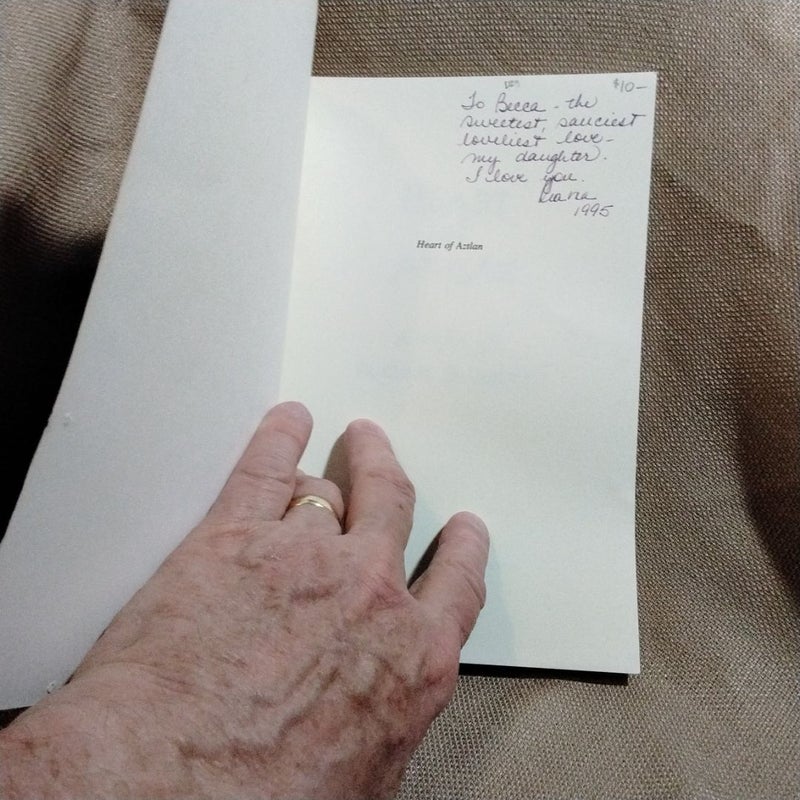 $10—
To Becca - the
sweetest, sauciest
loveliest love -
my daughter.
I love you.
1995
Heart of Aztlan